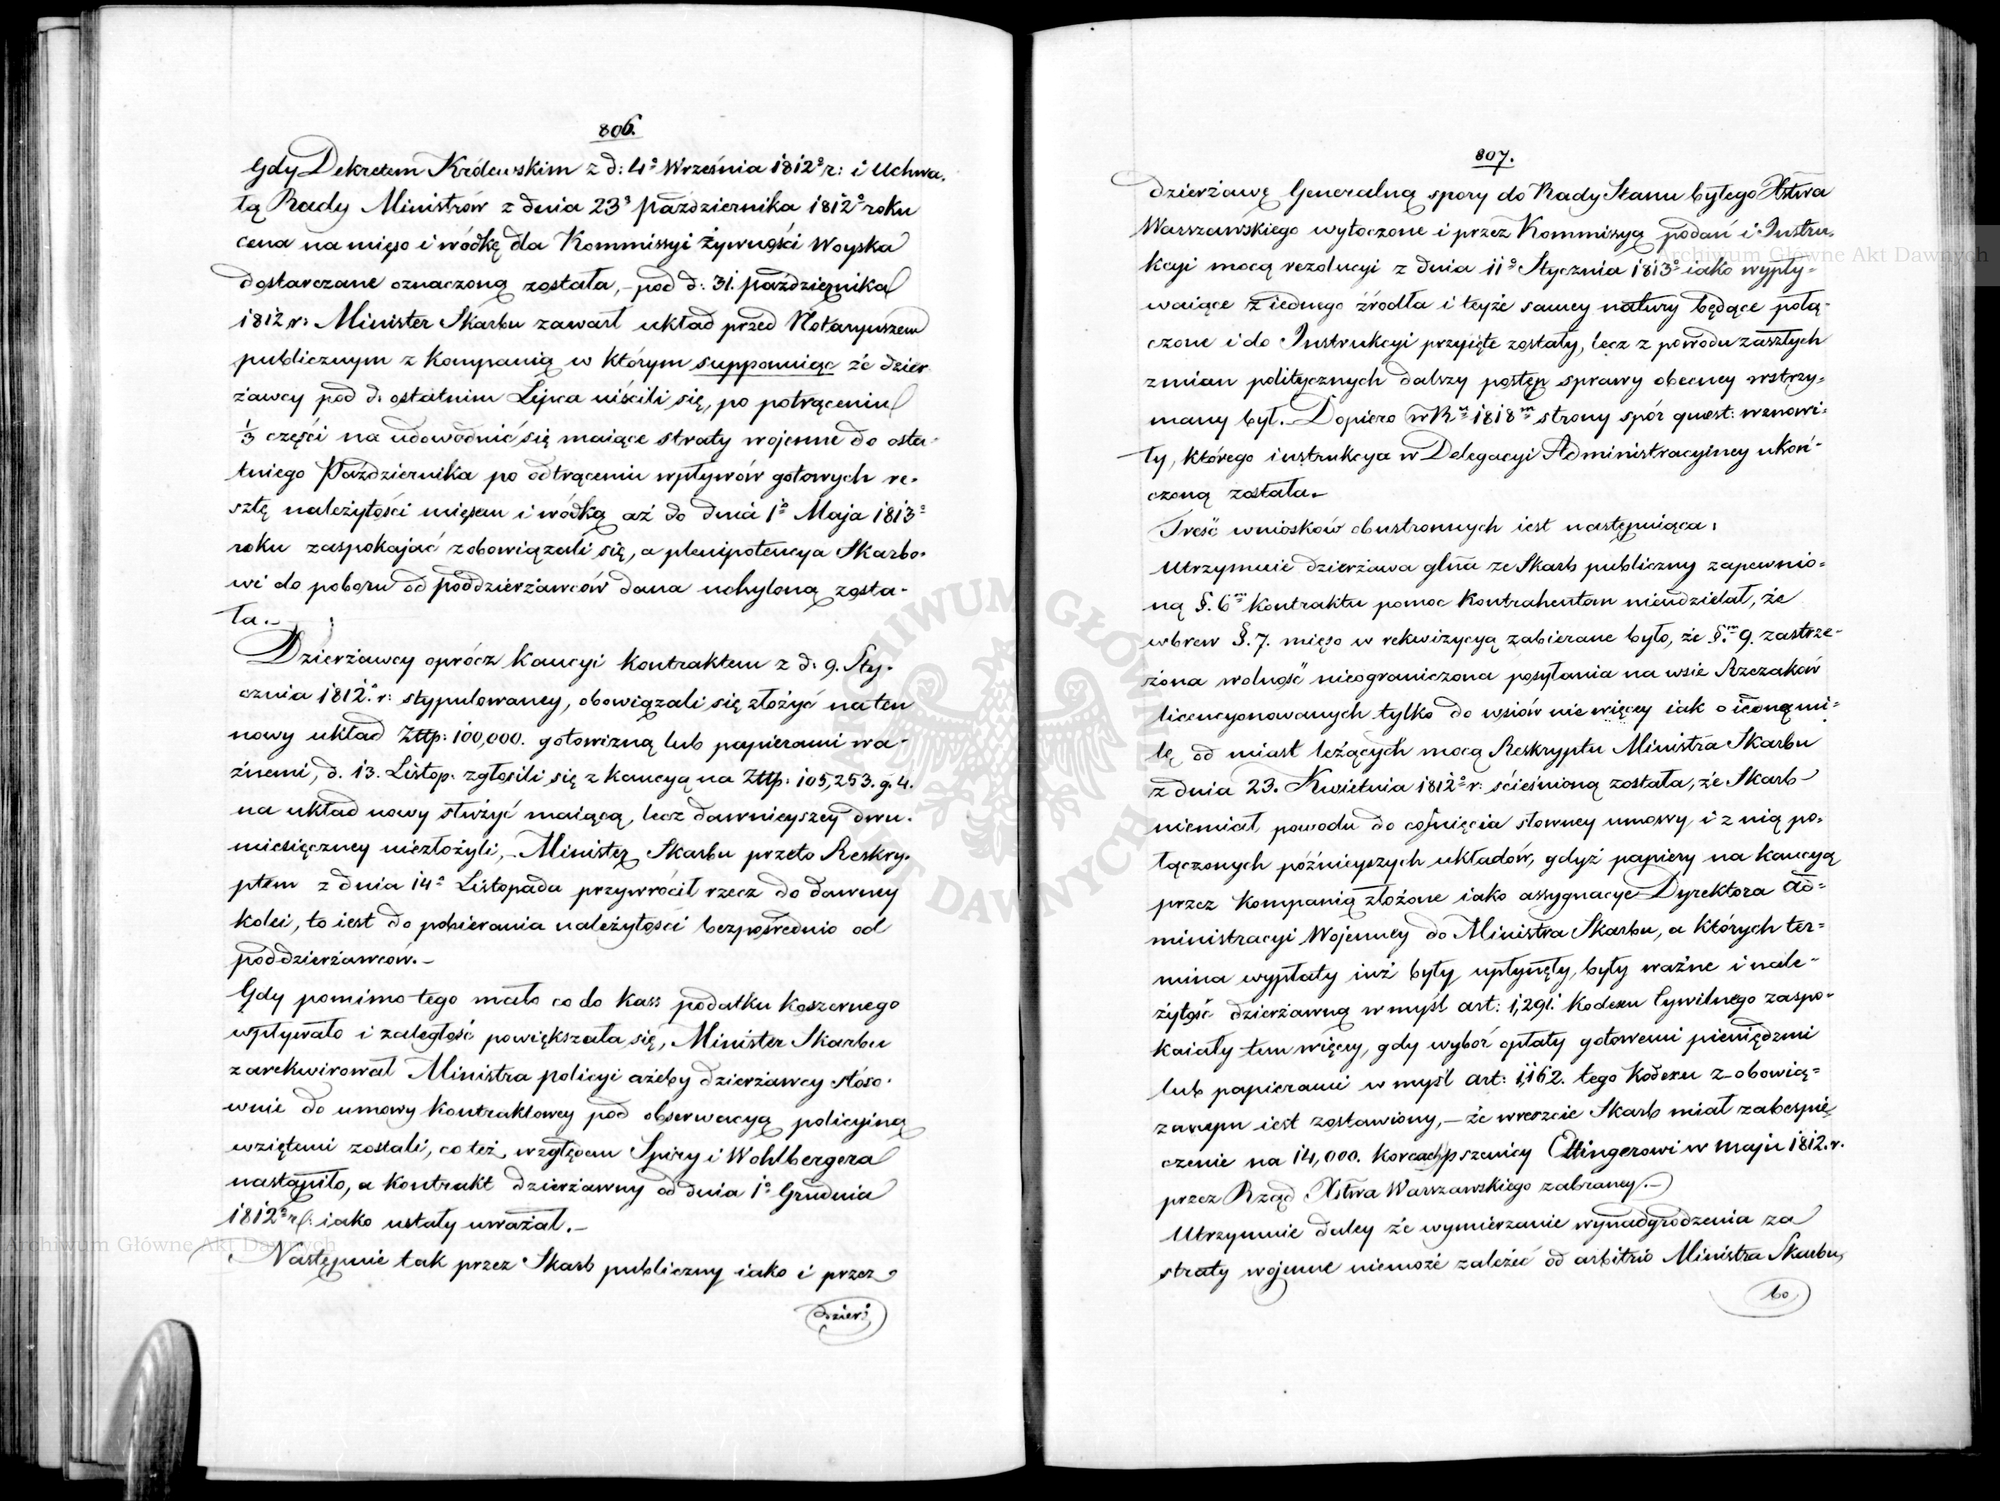 806.
Gdy Dekretem Królewskim z d: 4º Września 1812º r: i Uchwa.
łą Rady Ministrów z dnia 23º Października 1812º roku
cena na mięso i wódkę dla Kommissyi Żywności Woyska
dostarczane oznaczoną została, - pod d: 31. października
1812 r: Minister Skarbu zawarł układ przed Notaryuszem
publicznym z Kompanią w którym supponuiąc że dzier
żawcy pod d: ostatnim Lipca uiścili się, po potrąceniu
1/3 części na udowodnić się maiące straty wojenne do osta-
tniego Października po odtrąceniu wpływów gotowych re-
sztę należytości mięsem i wódką aż do dnia 1º Maja 1813º
roku zaspokajać zobowiązali się, a plenipotencya Skarbo-
wi do poboru od poddzierżawców dana uchyloną zosta-
ła.-
Dzierżawcy oprócz Kaucyi Kontraktem z d: 9. Sty-
cznia 1812º r: stypulowaney, obowiązali się złożyć na ten
nowy układ Złtp: 100,000. gotowizną lub papierami wa-
żnemi, d. 13. Listop. zgłosili się z Kaucyą na Złtp: 105,253. g. 4.
na układ nowy służyć maiącą, lecz dawnieyszey dwu-
miesięczney niezłożyli, - Minister Skarbu przeto Reskry-
ptem z dnia 14º Listopada przywrócił rzecz do dawney
kolei, to iest do pobierania należytości bezpośrednio od
poddzierżawców.-
Gdy pomimo tego mało co do Kass podatku Koszernego
wpływało i zaległość powiększała się, Minister Skarbu
zarekwirował Ministra policyi ażeby dzierżawcy stóso-
wnie do umowy Kontraktowey pod obserwacyą policyiną
wziętemi zostali, co też względem Spiry i Wohlbergera
nastąpiło, a Kontrakt dzierżawny od dnia 1º Grudnia
1812º r: iako ustały uważał.-
Następnie tak przez Skarb publiczny iako i przez
dzierż
807.
dzierżawę Generalną spory do Rady Stanu byłego Xstwa
Warszawskiego wytoczone i przez Kommissyą podań i Instru-
kcyi mocą rezolucyi z dnia 11º Stycznia 1813º iako wypły-
waiące z iednego źródła i teyże samey natury będące połą-
czone i do Instrukcyi przyięte zostały, lecz z powodu zaszłych
zmian politycznych dalszy postęp sprawy obecney wstrzy-
many był. Dopiero w Ru 1818m strony spór quest: wznowi-
ły, którego instrukcya w Delegacyi Administracyiney ukoń-
czoną została.-
Treść wniosków obustronnych iest następuiąca:
Utrzymuie dzierżawa glna ze Skarb publiczny zapewnio-
ną §. 6m Kontraktu pomoc Kontrahentom nieudzielał, że
wbrew §. 7. mięso w rekwizycyą zabierane było, że §m 9. zastrze-
żona wolność nieograniczona posyłania na wsie Rzezaków
licencyonowanych tylko do wsiów nie więcey iak o iedną mi-
lę od miast leżących mocą Reskryptu Ministra Skarbu
z dnia 23. Kwietnia 1812º r: ścieśnioną została, że Skarb
niemiał powodu do cofnięcia słowney umowy i z nią po-
łączonych późnieyszych układów, gdyż papiery na kaucyą
przez Kompanią złożone iako assygnacye Dyrektora Ad-
ministracyi Wojenney do Ministra Skarbu, a których ter-
mina wypłaty iuż były upłynęły, były ważne i nale-
żytość dzierżawną w myśl art: 1,291. Kodexu Cywilnego zaspo-
kaiały tem więcey, gdy wybór opłaty gotowemi pieniędzmi
lub papierami w myśl art: 1,162. tego Kodexu zobowią-
zanemu iest zostawiony, - że wreszcie Skarb miał zabespie-
czenie na 14,000. korcach pszenicy Ettingerowi w maju 1812. r.
przez Rząd Xstwa Warszawskiego zabraney.-
Utrzymuie daley że wymierzanie wynadgrodzenia za
straty wojenne niemoże zależeć od arbitrio Ministra Skarbu,
bo
Archiwum Główne Akt Dawnych
Archiwum Główne Akt Dawnych
ARCHIWUM GŁÓWNE AKT DAWNYCH